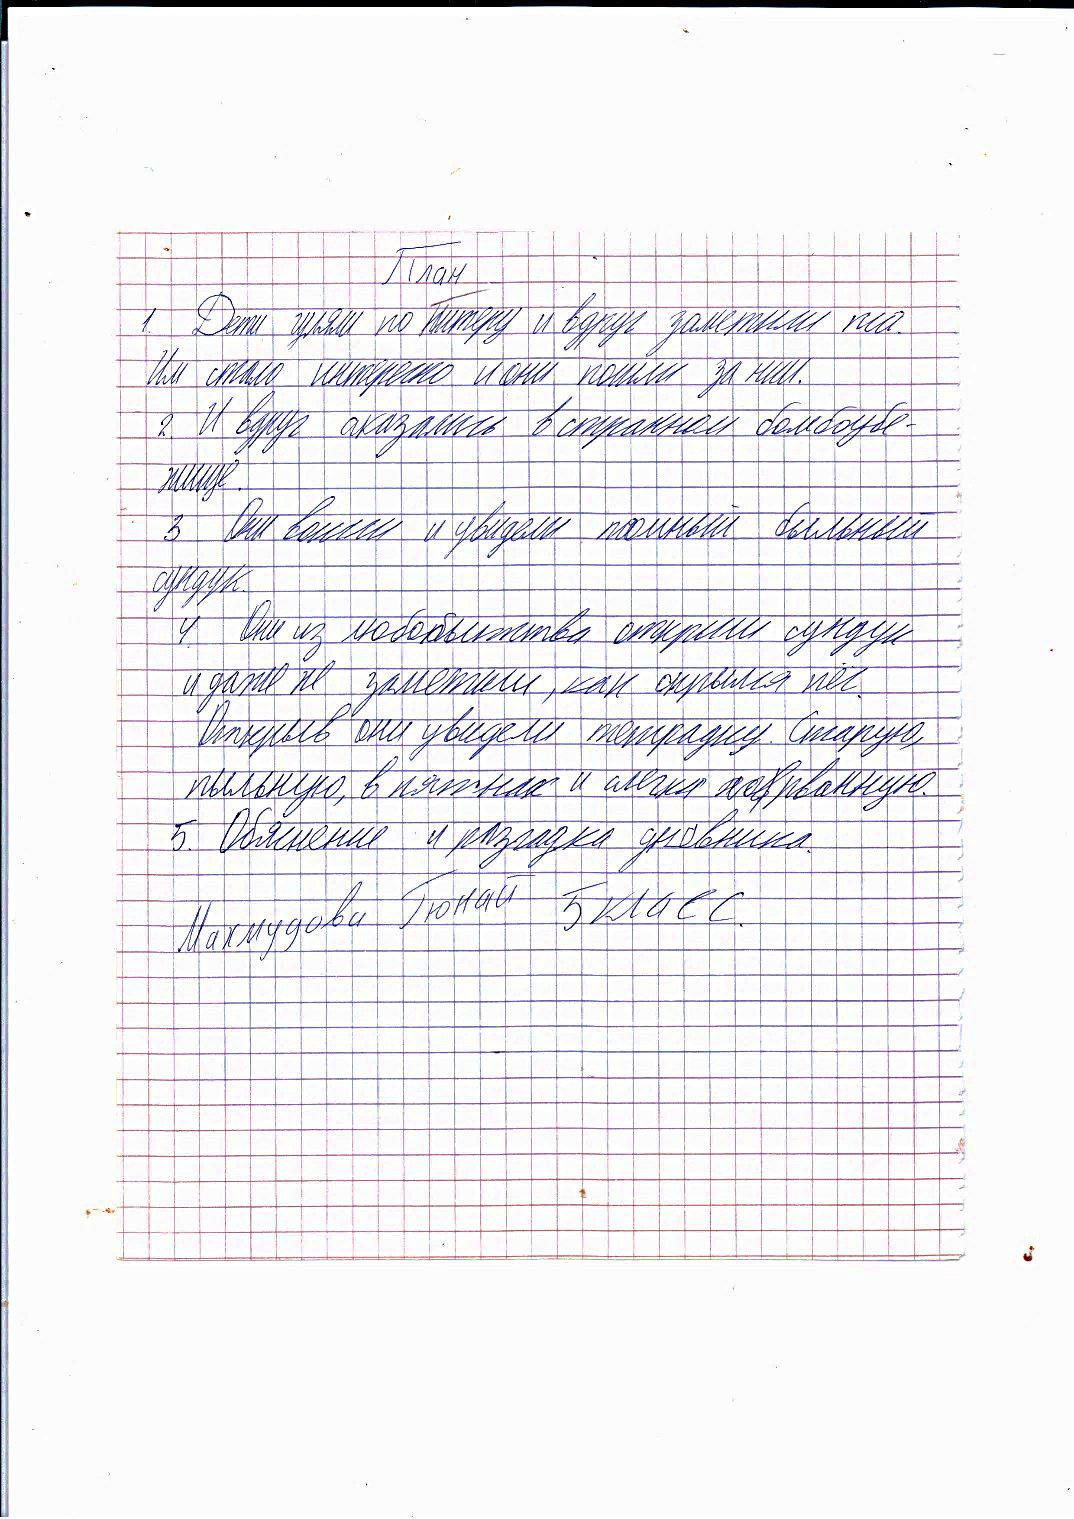 План
1. Дети гуляли по Питеру и вдруг заметили пса.
Им стало интересно и они пошли за ним.
2. И вдруг оказались в странном бомбоубе-
жище.
3 Они вошли и увидели пыльный
сундук.
4. Они из любобытства открыли сундук
и даже не заметили, как скрылся пёс.
Открыв они увидели тетрадку. Старую,
пыльную, в пятнах и слегка
5. Обяснение и разгадка дневника.
Махмудова Гюнай 5 класс.